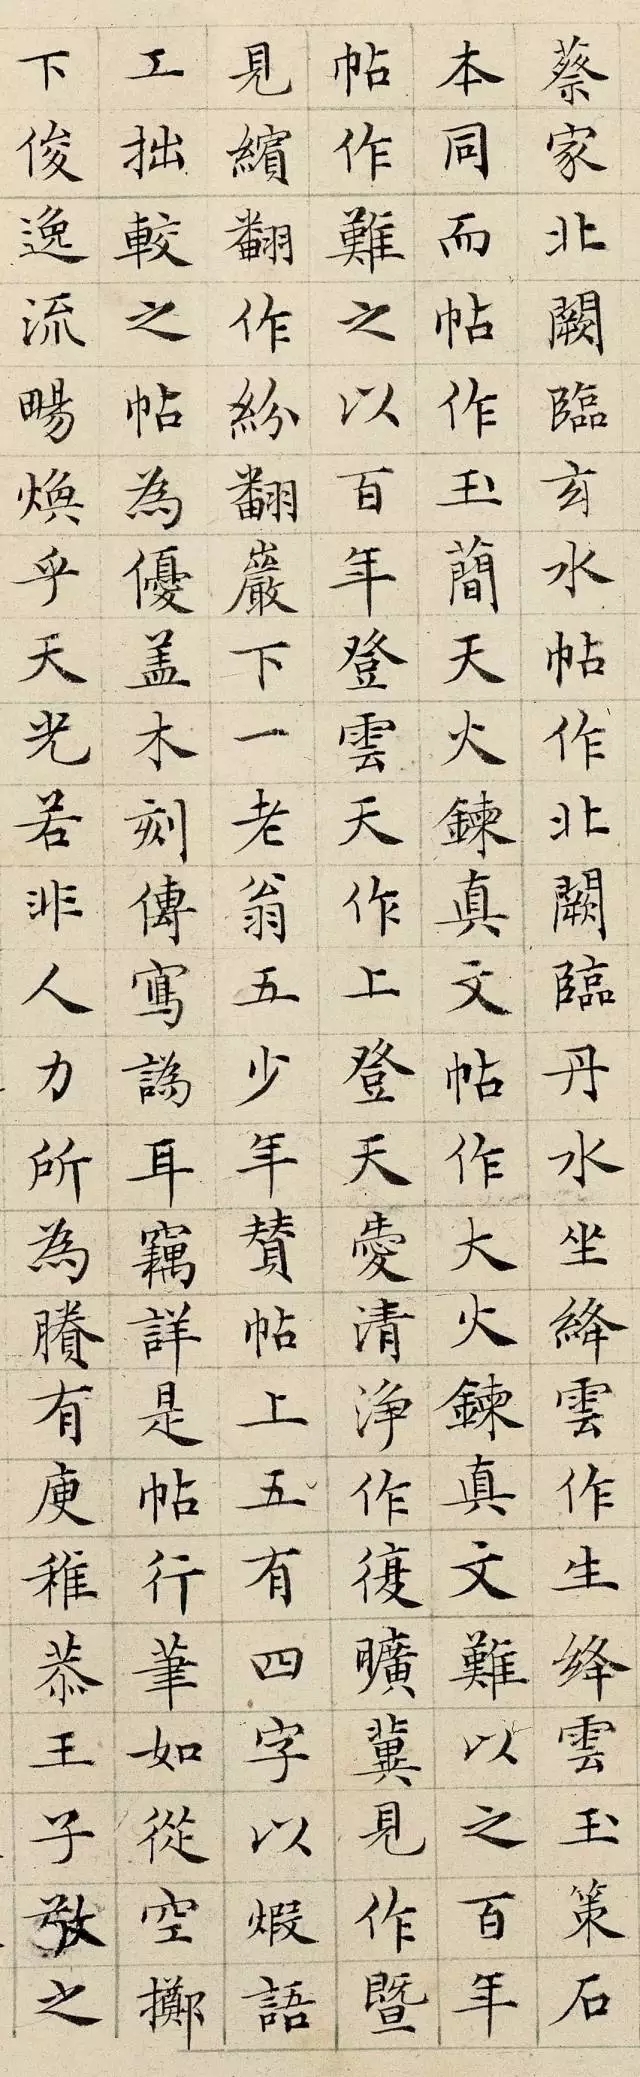 蔡家北闕臨玄水帖作北闕臨丹水坐絳雲作生絳雲玉策石
本同而帖作玉簡天火鍊真文帖作大火鍊真文難以之百年
帖作難之以百年登雲天作上登天愛清淨作復曠冀見作暨
見繽翻作紛翻巖下一老翁五少年贊帖上五有四字以煆語
工拙較之帖為優盖木刻傳寫譌耳竊詳是帖行筆如從空擲
下俊逸流暢煥乎天光若非人力所為賸有庾稚恭王子敬之